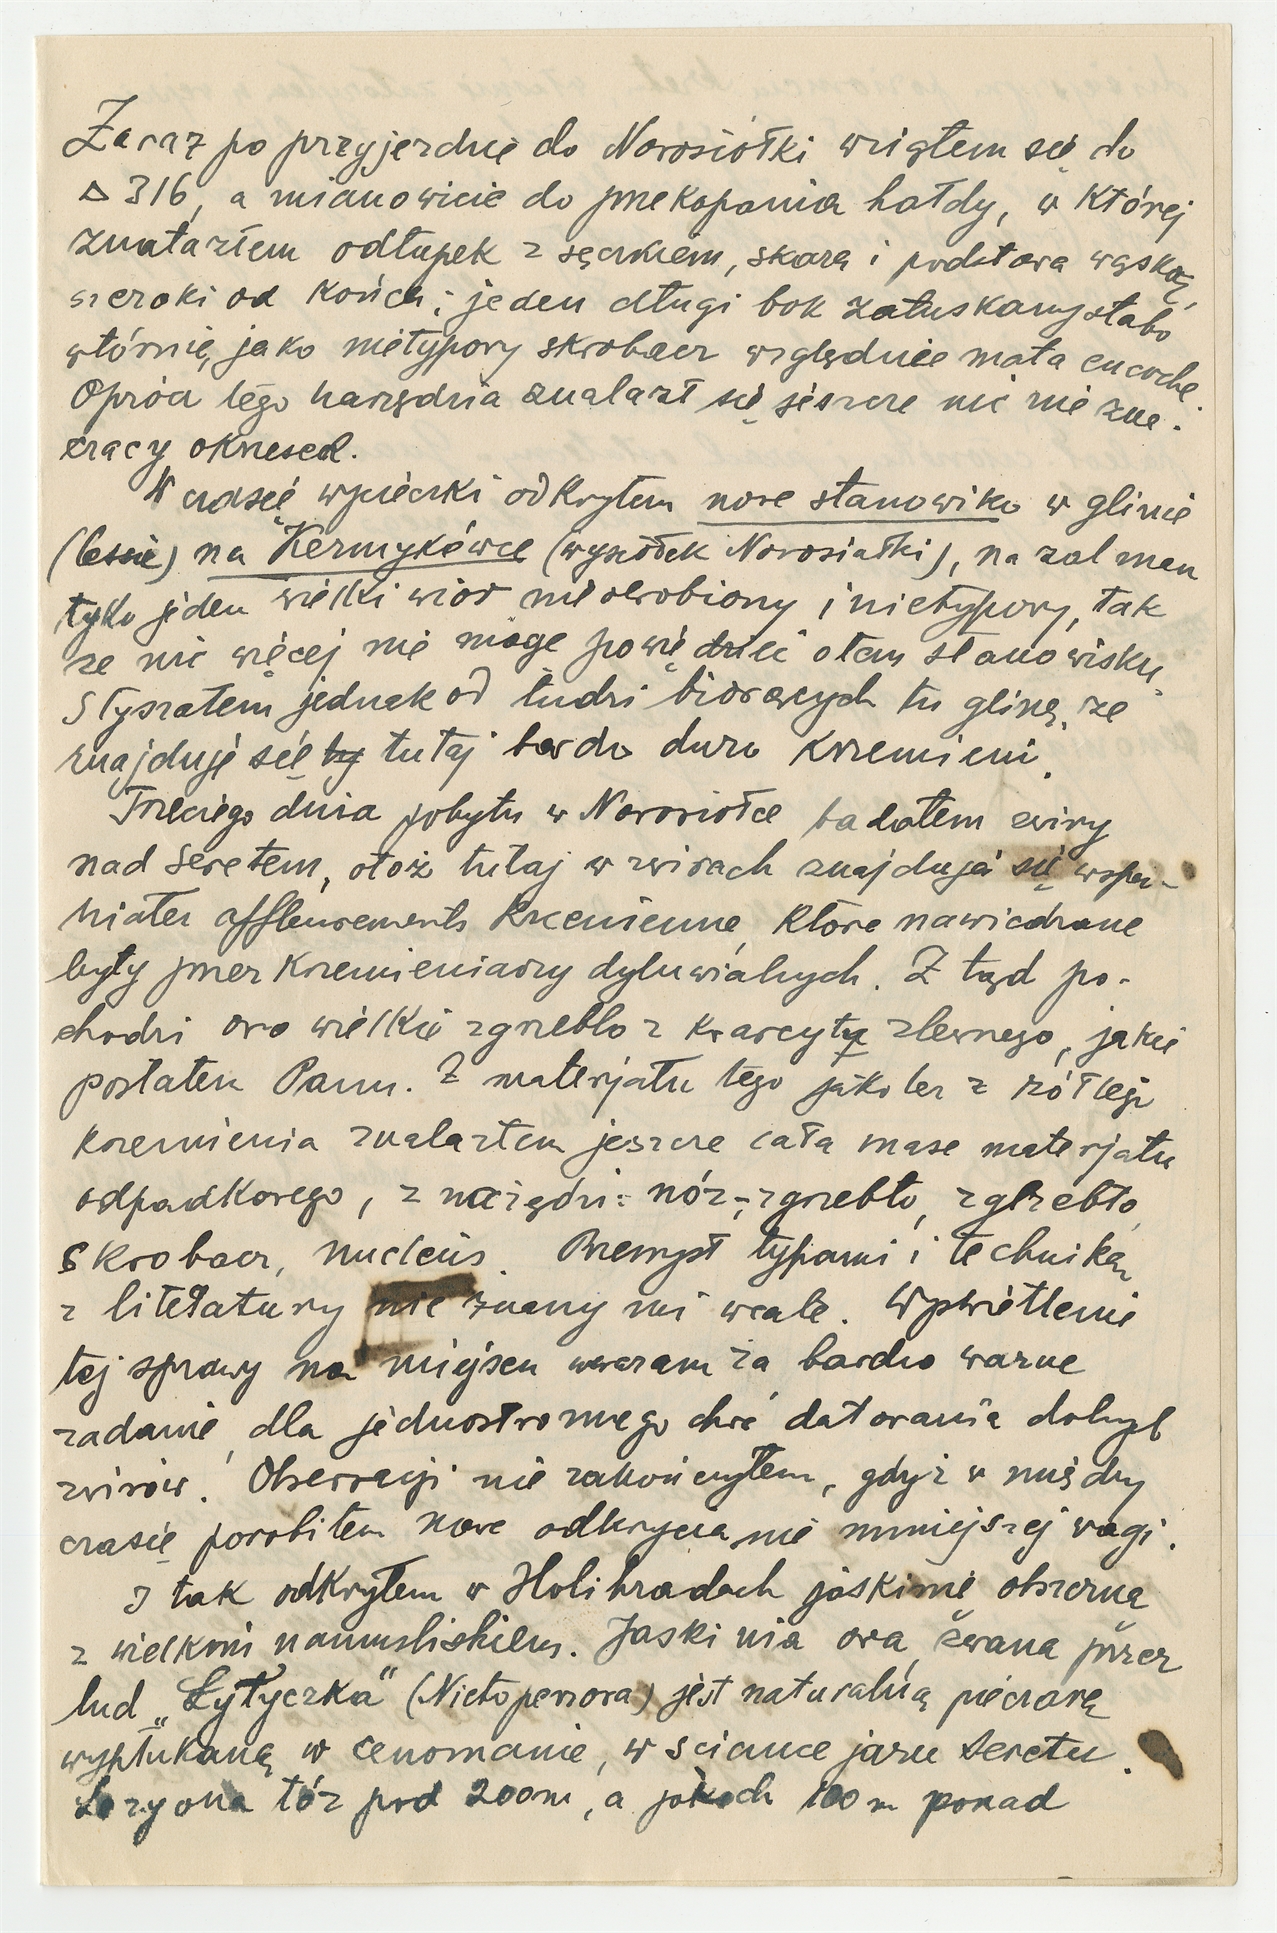 Zaraz po przyjeździe do Nowosiółki wziąłem się do
△ 316, a mianowicie do przekopania hałdy, w której
znalazłem odłupek z sęczkiem, skazą i podstawą wąską,
szeroki od końca; jeden długi bok załuskany słabo
wtórnie, jako nietypowy skrobacz względnie mała encoche.
Oprócz tego narzędzia znalazł się jeszcze nic nie zna-
czący okrzesek.
W czasie wycieczki odkryłem nowe stanowisko w glinie
(lessie) na "Kermykówce (wysiółek Nowosiałki), na żal mam
tylko jeden wielki wiór nieobrobiony i nietypowy, tak
że nic więcej nie mogę powiedzieć o tem stanowisku.
Słyszałem jednak od ludzi biorących tu glinę, że
znajduje się by tutaj bardzo dużo krzemieni.
Trzeciego dnia pobytu w Nowosiółce badałem żwiry
nad Seretem, otóż tutaj w żwirach znajdują się wspa-
niałe affleurements krzemienne, które nawiedzane
były przez krzemieniarzy dyluwialnych. Z tąd po-
chodzi owo wielkie zgrzebło z kwarcytu zlewnego, jakie
posłałem Panu. Z materjału tego jako też z żółtego
krzemienia znalazłem jeszcze całą masę materjału
odpadkowego, z narzędzi: nóż-zgrzebło, zgrzebło,
skrobacz, nucleus. Przemysł typami i techniką
z literatury nie znany mi wcale. Wyświetlenie
tej sprawy na miejscu uważam za bardzo ważne
zadanie, dla jednostronnego choć datowania dolnych
żwirów. Obserwacji nie zakończyłem, gdyż w między
czasie porobiłem nowe odkrycia nie mniejszej wagi.
I tak odkryłem w Holihradach jaskinię obszerną
z wielkim namuliskiem. Jaskinia owa, zwana przez
lud „Łytyczka" (Nietoperzowa) jest naturalną pieczarą
wypłukaną w cenomanie, w sciance jaru Seretu.
Leży ona tóż pod 200m, a jakoch 100 m ponad